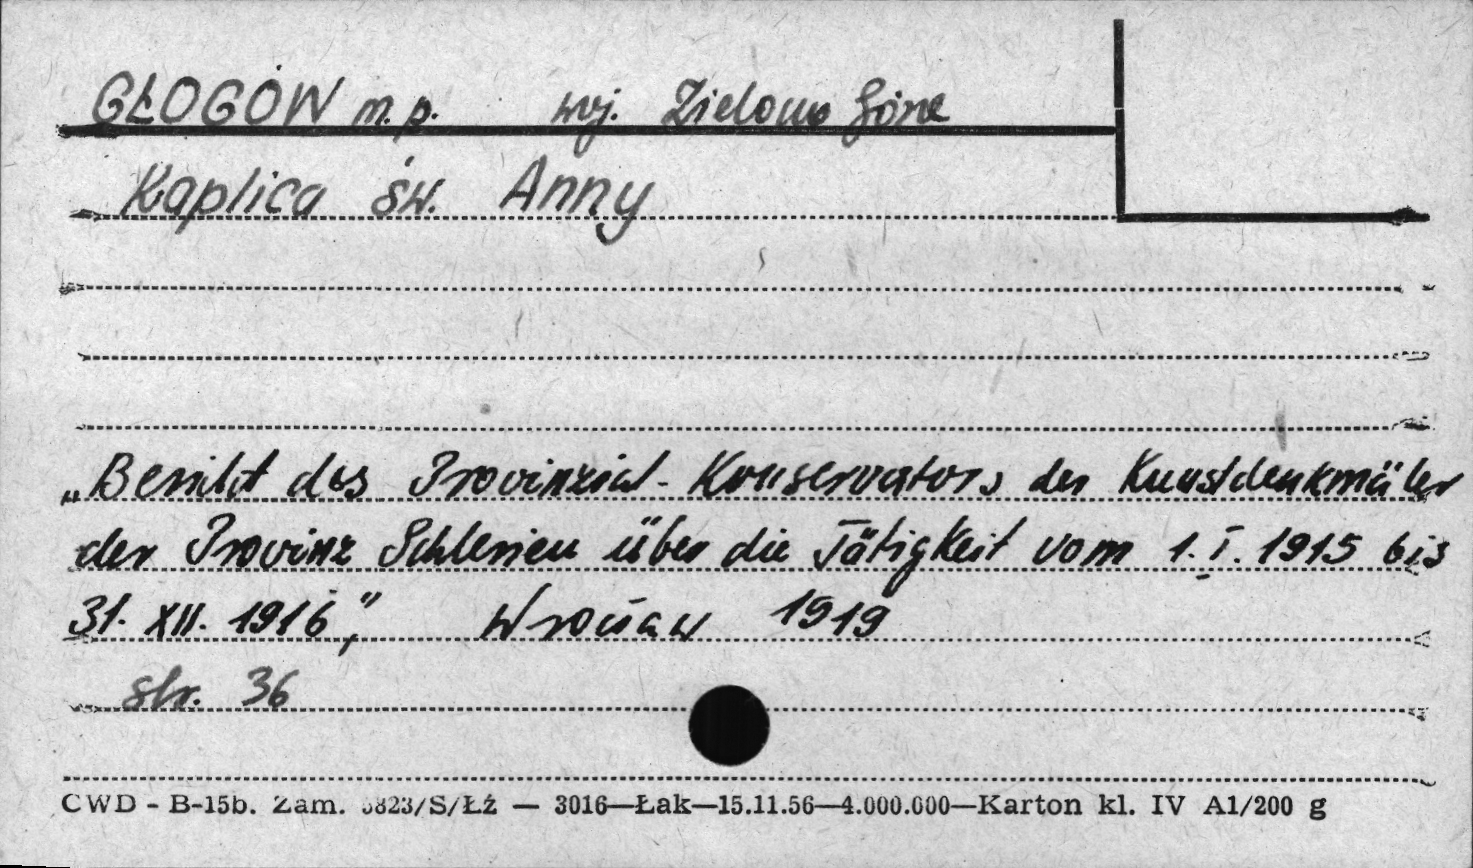 GŁOGÓW m.p. woj. Zielona Góra
Kaplica św. Anny
„Bericht des Provinzial-Konservators der Kunstdenkmäler
der Provinz Schlesien über die Tätigkeit vom 1.I.1915 bis
31.XII.1916," Wrocław 1919
str. 36
CWD - B-15b. Zam. 5823/S/ŁŻ — 3016—Łak—15.11.56—4.000.000—Karton kl. IV A1/200 g